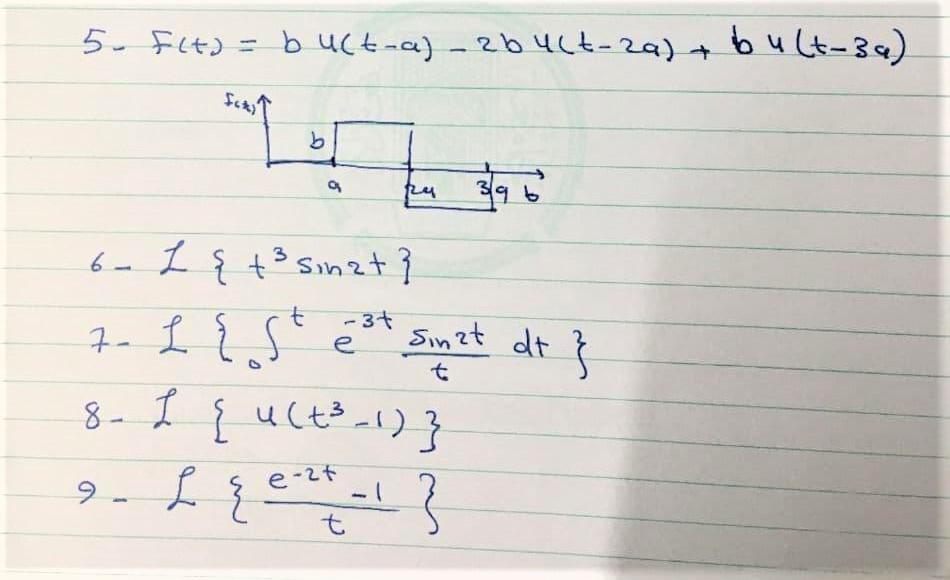 5- F(t) = b u(t-a) - 2b u(t-2a) + b u(t-3a)
f(t)
b
a 2a 3a b
6- L { t³ sin2t }
7- L { ₀∫ᵗ e⁻³ᵗ sin2t/t dt }
8- L { u(t³-1) }
9- L { e⁻²ᵗ-1/t }